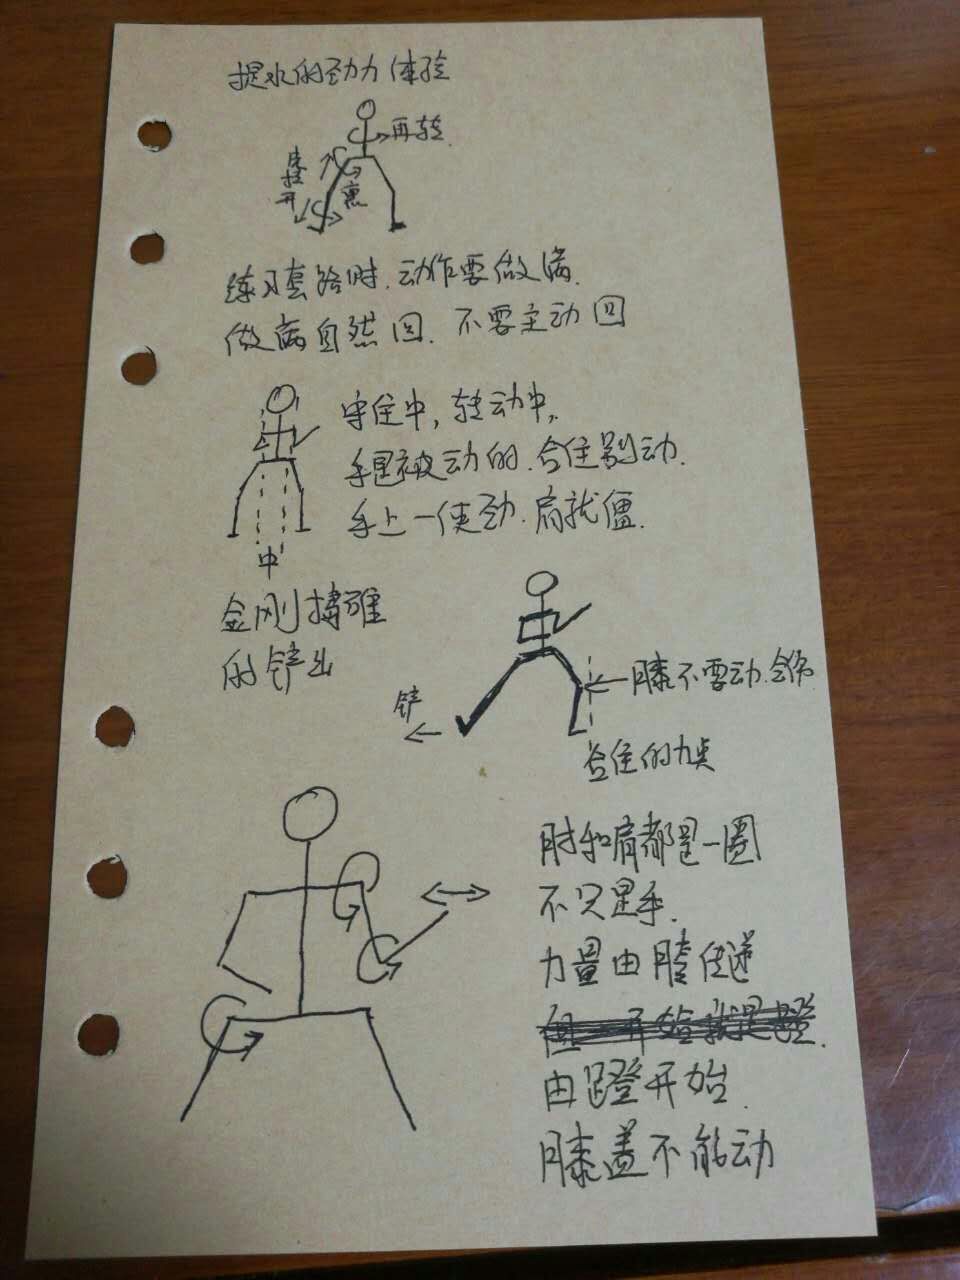 提水的劲力体验
再转
膝打开
裹
练习套路时.动作要做满.
做满自然回.不要主动回
守住中,转动中,
手是被动的.合住别动.
手上一使劲.肩就僵.
中
金刚捣碓
的铲出
铲
膝不要动.合住
合住的力点
肘和肩都是一圈
不只是手.
力量由膝传递
由蹬开始.
膝盖不能动